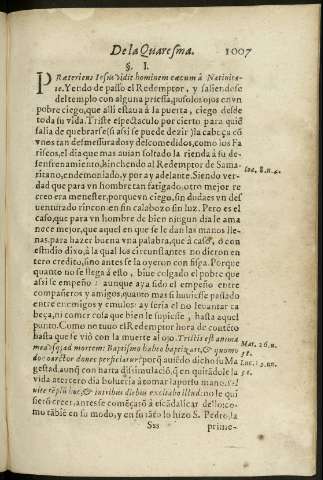 De la Quaresma. 1007
§. I.
PRæteriens Iesus vidit hominem cæcum à Natiuita-
te. Yendo de passo el Redemptor, y saliendose
del templo con alguna priessa, puso los ojos en vn
pobre ciego, que alli estaua à la puerta, ciego desde
toda su vida. Triste espectaculo por cierto para quiẽ
salia de quebrarse (si assi se puede dezir) la cabeça cõ
vnos tan desmesurados y descomedidos, como los Fa
riseos, el dia que mas auian soltado la rienda à su de-
senfrenamiento, hinchendo al Redemptor de Sama-
ritano, endemoniado, y por ay adelante. Siendo ver-
dad que para vn hombre tan fatigado, otro mejor re
creo era menester, porque vn ciego, sin duda es vn des
uenturado rincon en sin calabozo sin luz. Pero es el
caso, que para vn hombre de bien ningun dia le ama
nece mejor, que aquel en que se le dan las manos lle-
nas, para hazer buena vna palabra, que à caso, ò con
estudio dixo, à la qual los circunstantes no dieron en
tero credito, sino antes se la oyeron con fisga. Porque
quanto no se llega à esto, biue colgado el pobre que
assi se empeño: aunque aya sido el empeño entre
compañeros y amigos, quanto mas si huuiesse passado
entre enemigos y emulos: ay seria el no leuantar ca
beça, ni comer cola que bien le supiesse, hasta aquel
punto. Como no tuuo el Redemptor hora de contẽto
hasta que se viò con la muerte al ojo. Tristis est anima
mea vsq; ad mortem: Baptismo habeo baptizari, & quomo
do coarctor donec perficiatur? porq̃ auiẽdo dicho su Ma
gestad, aunq̃ con harta dissimulaciõ, q̃ en quitãdole la
vida a tercero dia bolueria à tomar la por su mano. Sol
uite templũ hoc, & in tribus diebus excitabo illud: no le qui
sierõ creer, antes se començarõ à escãdalizar dello: co
mo tãbiẽ en su modo, y en su tãto lo hizo S. Pedro, la
Sss prime-
Ioa. 8. n. 4.
Mat. 26. n.
38.
Luc. 12. nu.
50.